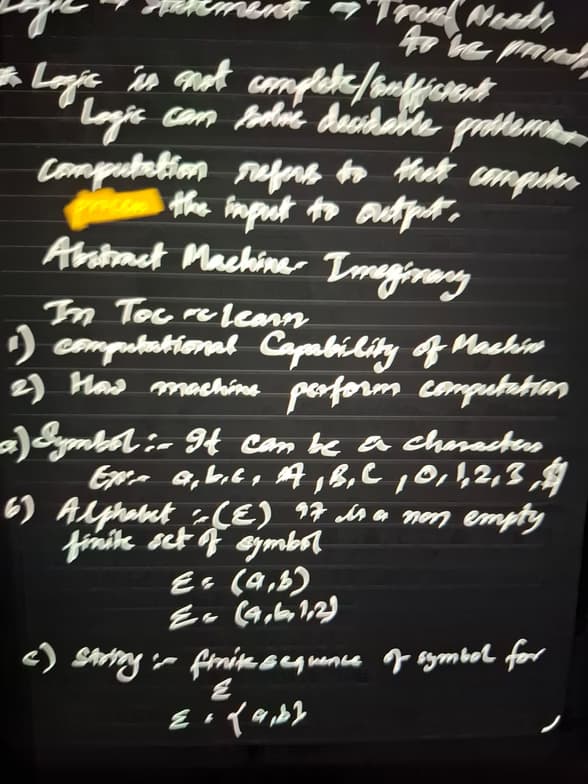 Logic → Statement → True (Needs
to be proved
* Logic is not complete/sufficient
Logic can solve decidable problems
Computation refers to that computer
process the input to output.
Abstract Machine - Imaginary
In TOC we learn
1) computational Capability of Machine
2) How machine perform computation
a) Symbol :- It can be a characters
Ex:- a, b, c, A, B, C, 0, 1, 2, 3, $
b) Alphabet :- (Σ) It is a non empty
finite set of symbol
Σ = (a,b)
Σ = (a,b,1,2)
c) String :- finite sequence of symbol for
Σ
Σ = {a,b}